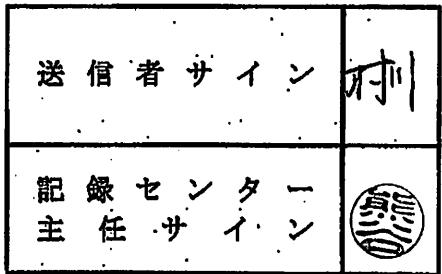 送信者サイン
記録センター
主任サイン